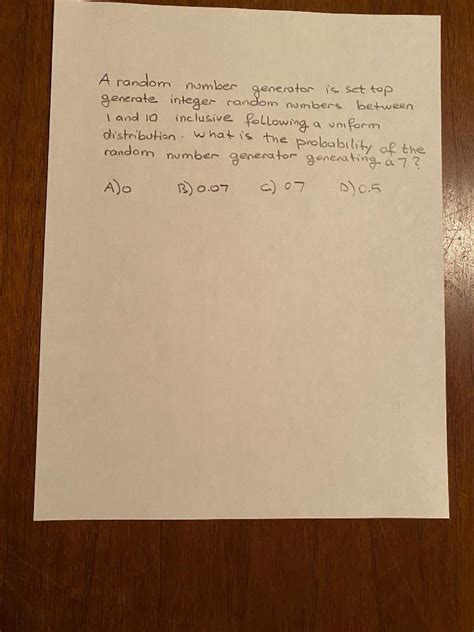 A random number generator is set top
generate integer random numbers between
1 and 10 inclusive following a uniform
distribution. What is the probability of the
random number generator generating a 7?
A) 0 B) 0.07 C) 07 D) 0.5